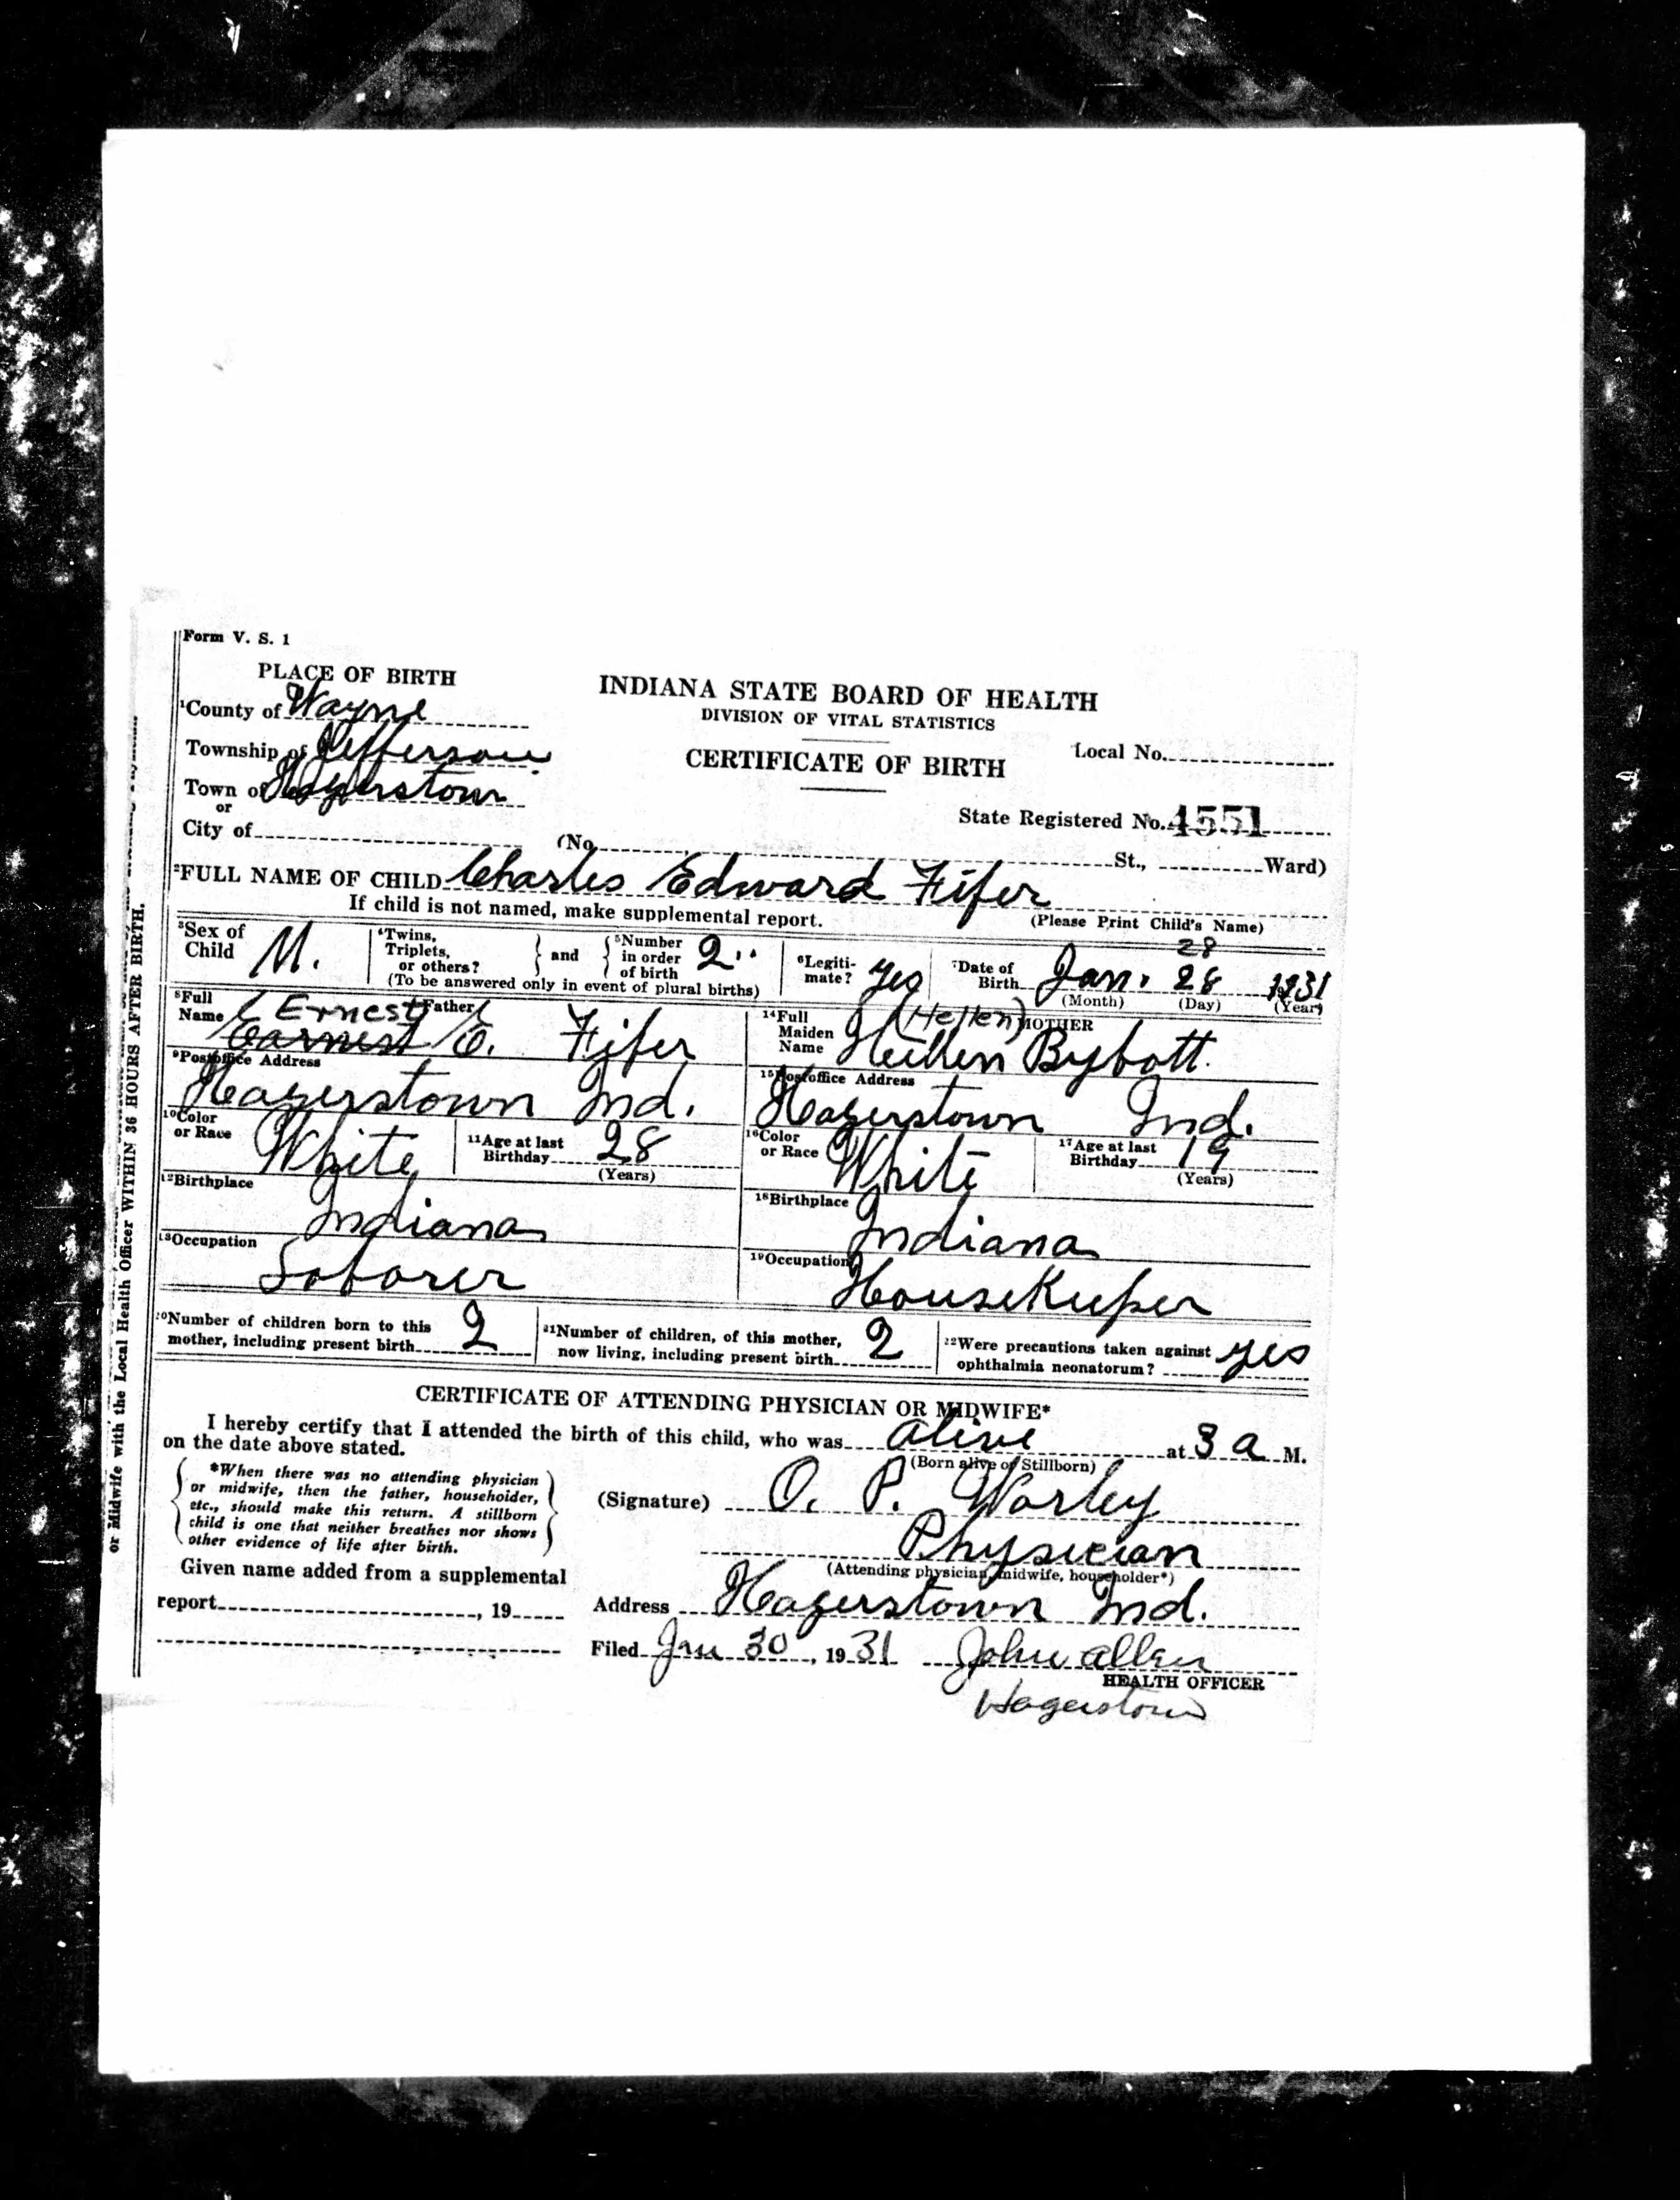 Form V. S. 1
PLACE OF BIRTH
INDIANA STATE BOARD OF HEALTH
DIVISION OF VITAL STATISTICS
1County of Wayne
Township of Jefferson
CERTIFICATE OF BIRTH
Local No.
Town of Hagerstown
or
State Registered No. 4551
City of (No. St., Ward)
2FULL NAME OF CHILD Charles Edward Fifer
If child is not named, make supplemental report. (Please Print Child's Name)
3Sex of Child M.
4Twins, Triplets, or others? } and { 5Number in order of birth 2
(To be answered only in event of plural births)
6Legiti-mate? yes
28
7Date of Birth Jan. 28 1931
(Month) (Day) (Year)
8Full Name (Ernest) Father
Earnest E. Fifer
14Full Maiden Name (Hellen) MOTHER
Hellen Bybott.
9Postoffice Address
Hagerstown Ind.
15Postoffice Address
Hagerstown Ind.
10Color or Race White
11Age at last Birthday 28
(Years)
16Color or Race White
17Age at last Birthday 19
(Years)
12Birthplace
Indiana
18Birthplace
Indiana
13Occupation
Laborer
19Occupation
HouseKeeper
20Number of children born to this mother, including present birth 2
21Number of children, of this mother, now living, including present birth 2
22Were precautions taken against ophthalmia neonatorum? yes
CERTIFICATE OF ATTENDING PHYSICIAN OR MIDWIFE*
I hereby certify that I attended the birth of this child, who was alive at 3 a M.
on the date above stated.
(Born alive or Stillborn)
*When there was no attending physician
or midwife, then the father, householder,
etc., should make this return. A stillborn
child is one that neither breathes nor shows
other evidence of life after birth.
(Signature) O. P. Worley
Physician
(Attending physician, midwife, householder*)
Given name added from a supplemental
report , 19
Address Hagerstown Ind.
Filed Jan 30, 1931 John Allen
HEALTH OFFICER
Hagerstown
or Midwife with the Local Health Officer WITHIN 36 HOURS AFTER BIRTH.